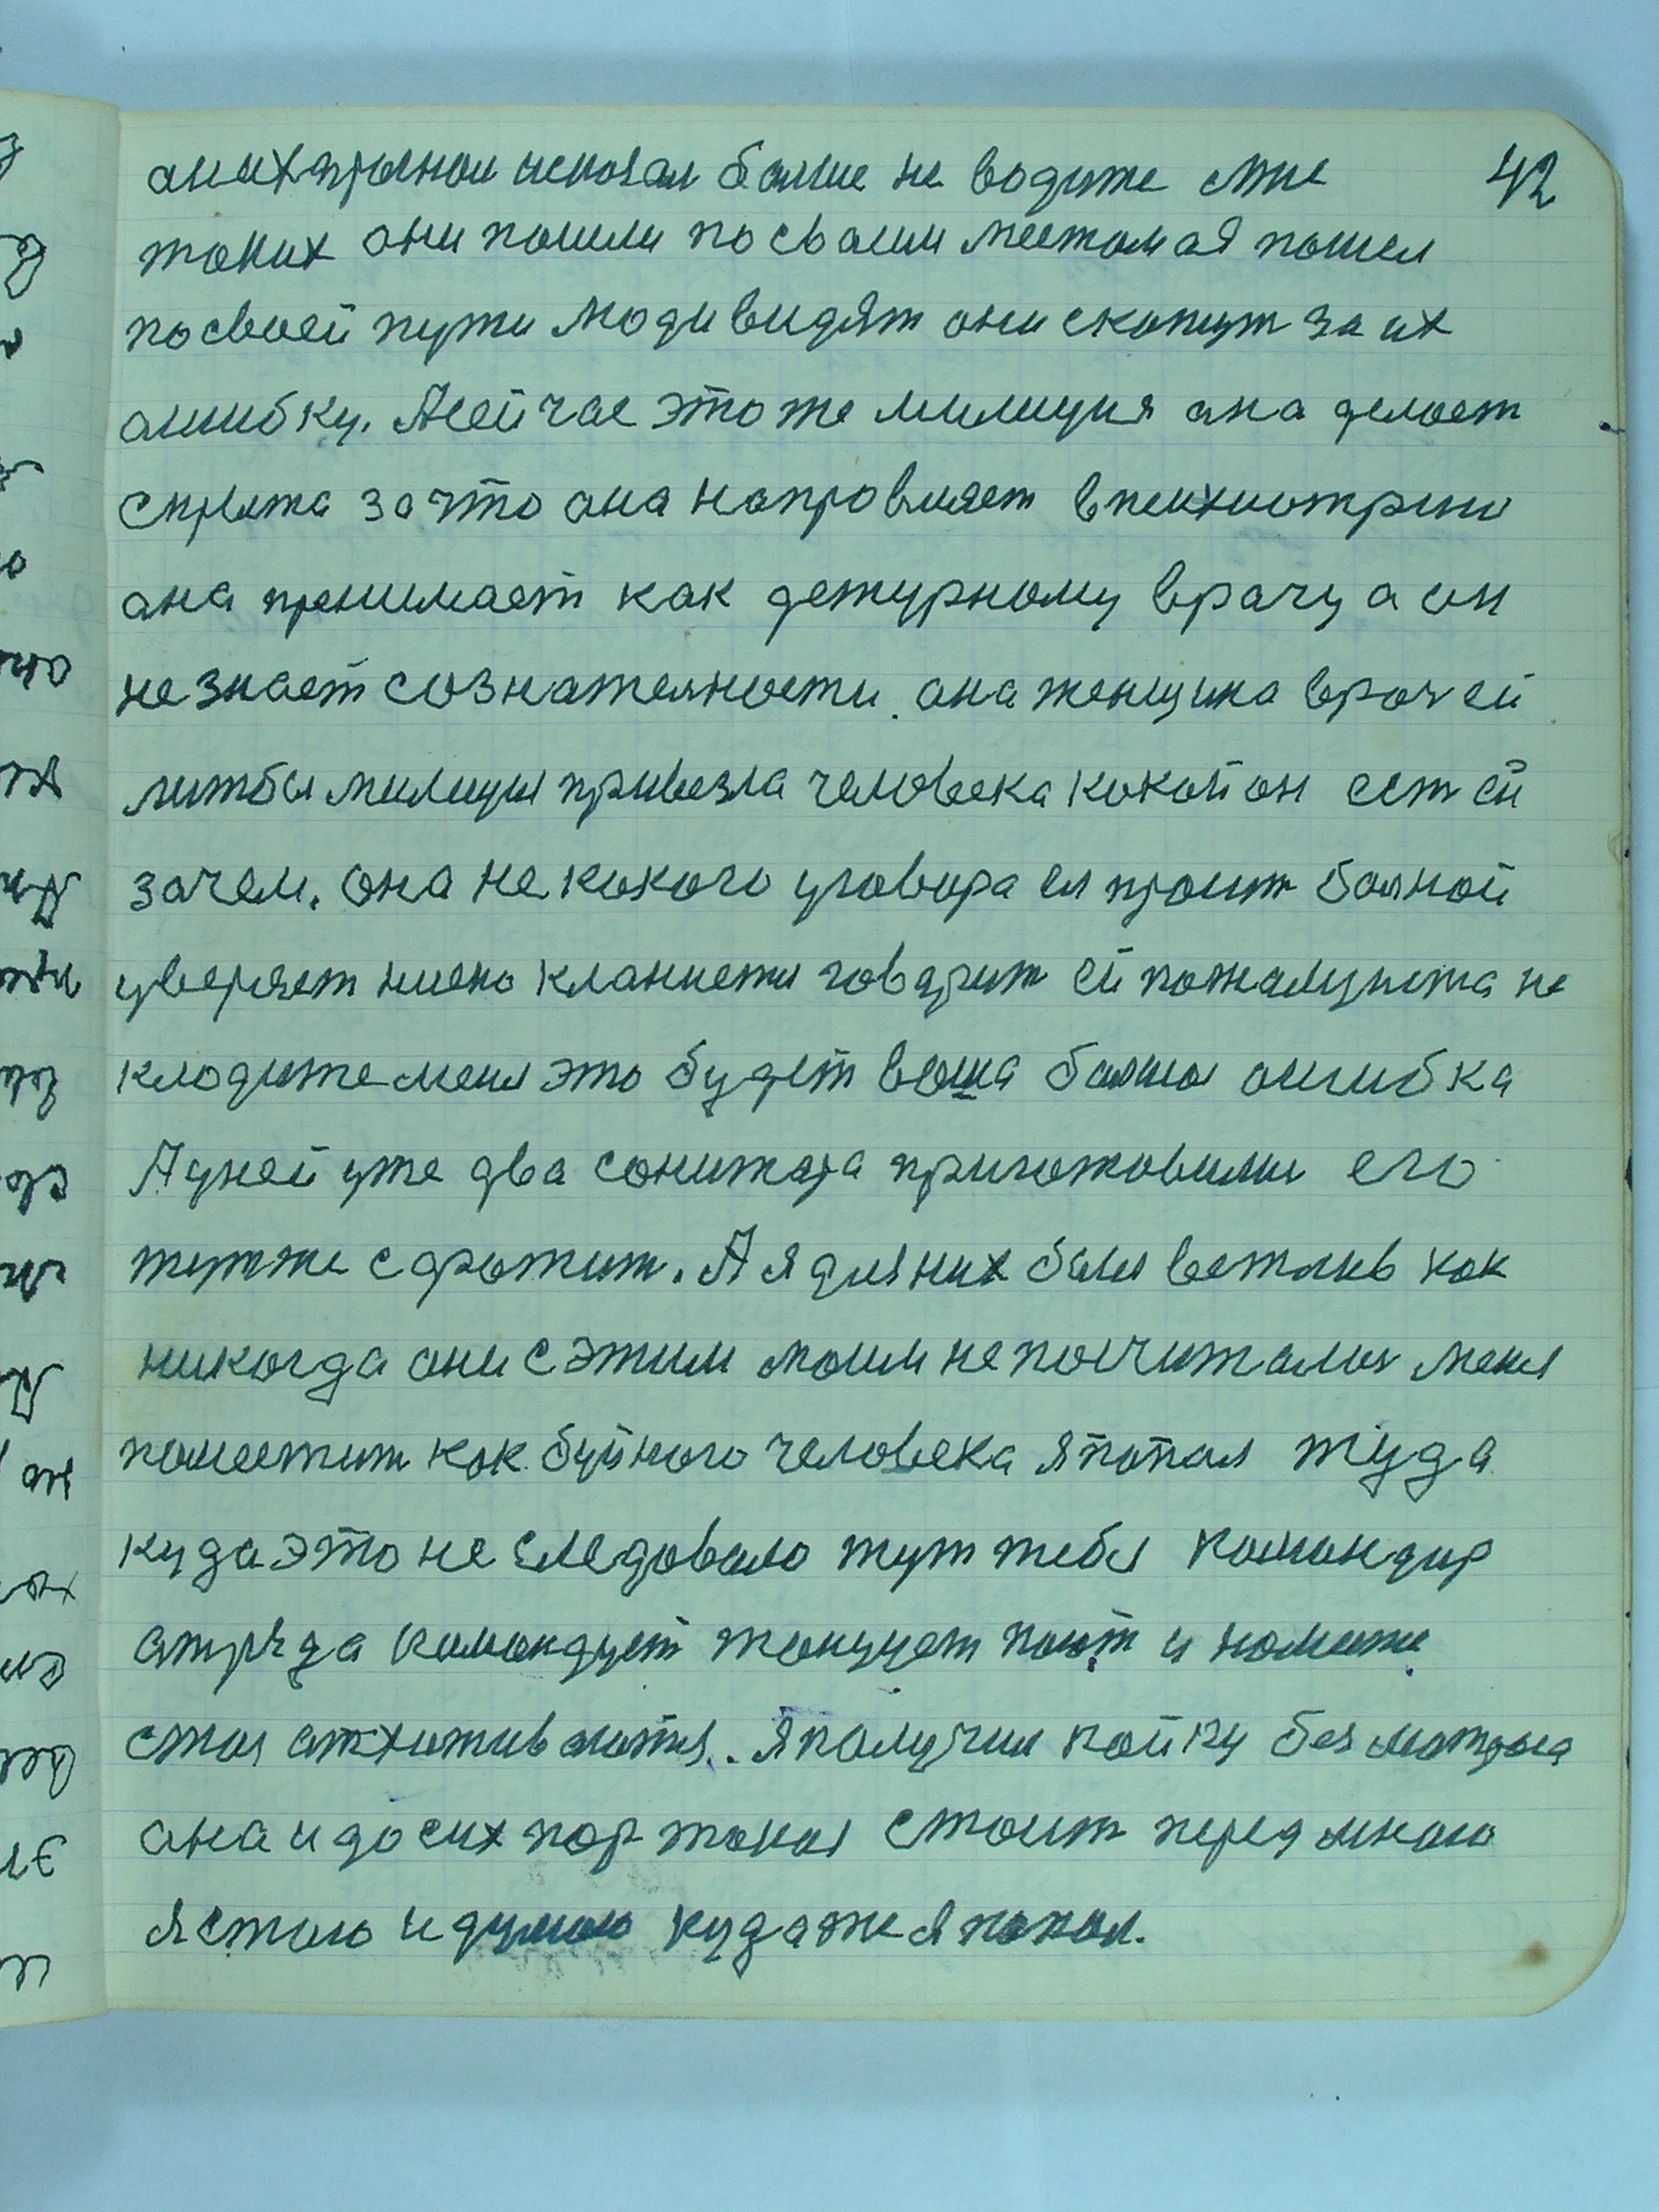 42
сказал болше не водите мне
таких они пошли по своим местам а я пошел
по своей пути люди видят они скажут за их
ошибку. А сейчас это же милиция она делает
спрята за что она направляет в психиотрию
ана пренимает как дежурному врачу а он
не знает сознателности. она женщина врач ей
литбы милиция привезла человека какой он ест ей
зачем. она не какого уговора ея просит болной
уверяет низко кланиется говарит ей пожалуйста не
кладите меня это будет ваша болшая ошибка
А у ней уже два санитара приготовили его
тут же схватит. А я для них был вежлив как
никогда они с этим моим не посчиталис меня
поместит как буйного человека я попал туда
куда это не следовало тут тебя командир
атряда командует танцует поют и
стоя . Я получил койку без матраса
ана и до сих пор такая стоит перед мною
я стою и думаю куда же я попал.